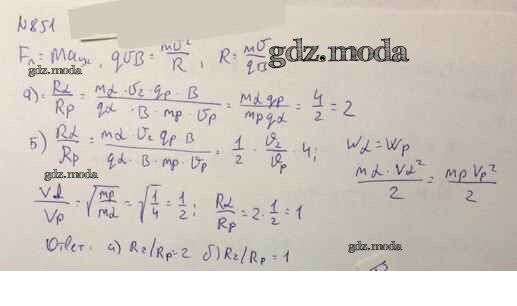 N851
Fл = maцс, qυB = mυ²/R, R = mυ/qB
gdz.moda
gdz.moda
а) = Rα/Rp = mα · υα · qp · B / qα · B · mp · υp = mα qp / mp qα = 4/2 = 2
б) Rα/Rp = mα · υα qp B / qα · B · mp · υp = 1/2 · υα/υp · 4; Wα = Wp
gdz.moda
mα · Vα²/2 = mp Vp²/2
Vα/Vp = √mp/mα = √1/4 = 1/2; Rα/Rp = 2 · 1/2 = 1
Ответ: а) Rα/Rp = 2 б) Rα/Rp = 1
gdz.moda